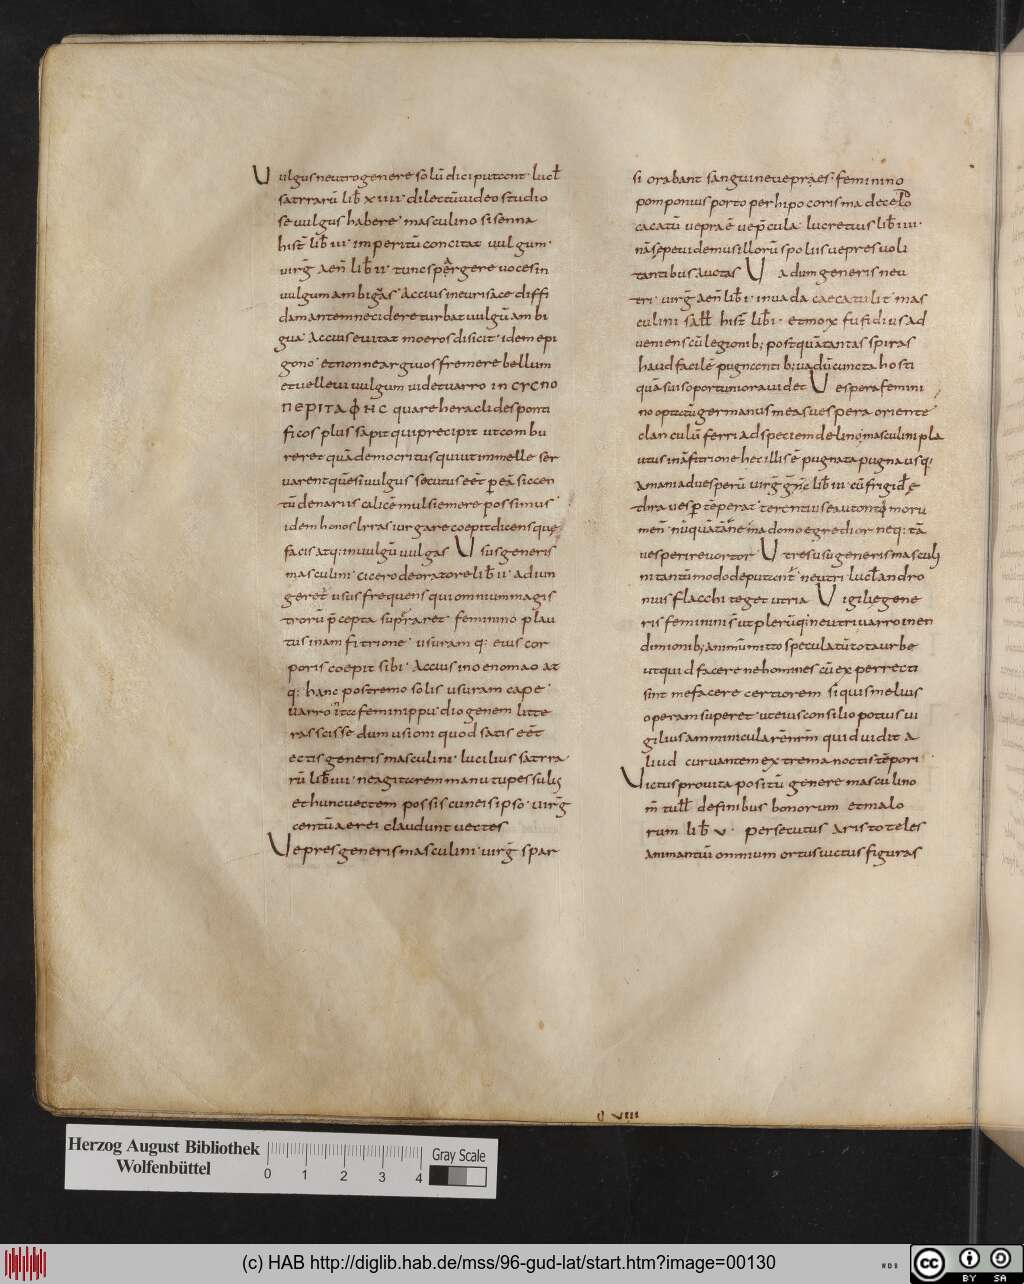 Uulgus neutro genere solū dici putant lucl̄
satrrarū lib̄ xiiii· dilectū uideo studio
se uulgus habere· masculino sisenna
hist̄ lib̄ iii· imperitū concitat uulgum·
uirḡ aen̄ lib̄ ii· tunc spargere uoces in
uulgum ambiguas· Accius ineurisace diffi
damantem necidere turbat uulgū ambi
gua· Accius euitat moeros disicit· idem epi
gono· et nonne arguos fremere bellum
et uelle ui uulgum uidet uarro in
quare heraclides ponti
ficos plus sapit qui precipit ut combu
reret quā democritus qui ut in melle ser
uarent quē si uulgus secutus eēt peā si ccen
tū denariis calicē mulsi emere possimus·
idem honos
facis atq: inuulgū uulgas Usus generis
masculini· cicero de oratore lib̄ ii· adiun
geret· usus frequens qui omnium magis
trorū p̄cepta supraret· feminino plau
tus in amfitrione· usuram q: eius cor
poris coepit sibi· Accius inoenomao at
q: hanc postremo solis usuram cape·
uarro ita feminippu diogenem litte
ras scisse dum usioni quod satis eēt
ectis generis masculini· lucilius satrra
rū lib̄ iiii· neagitarem manu tu pessulis
et hunc uectem possis cuneis ipso· uirḡ
centū aerei claudunt uectes
Uepres generis masculini· uirḡ spar
si orabant sanguine uepraes· feminino
pomponius porto perhipocorisma
cacatū uepraē uep̄cula· lucretius lib̄ iiii·
nā sepe uidemus illorū spoliis uepres uoli
tantibus auctas Uadum generis neu
tri· uirḡ aen̄ lib̄ i· inuada caecatulit· mas
culini sall̄ hist̄ lib̄ i· et mox fufidius ad
ueniens cū legionib; postquā tantas spiras
haud facilē pugnanti b; uadū cuncta hosti
quā suis oportuniora uidet Uespera femini
no optatū germanus mea suespera oriente·
clanculū ferri adspeciem delino; masculini pla
utus in āfitrione hec illis ē pugnata pugna usq·
amani aduesperū
uesp̄ tēperat· terentius eautontimoru
men̄· nūquā tane mane domo egredior neq: tā
uesperi reuortor Utres usū generis masculi
ni tantū modo deputant· neutri lucl̄ andro
nius flacchi teget utria Uigiliē gene
ris feminini s̄ ut plerūq: neutri uarro in en
dimionib; animū mitto speculatū tota urbe
ut quid facere ne homines cū experrecti
sint me facere certiorem siquis melius
operam superet· uteius consilio potius ui
gilius quid uidit a
liud curuantem extrema noctis tēpori·
Uictus pro uita positū genere masculino
m̄ tull̄ definibus bonorum et malo
rum lib̄ v· persecutus aristoteles
animantiū omnium ortus uictus figuras
q VIII
Herzog August Bibliothek
Wolfenbüttel
0 1 2 3 4
Gray Scale
(c) HAB http://diglib.hab.de/mss/96-gud-lat/start.htm?image=00130
WDB
cc BY SA